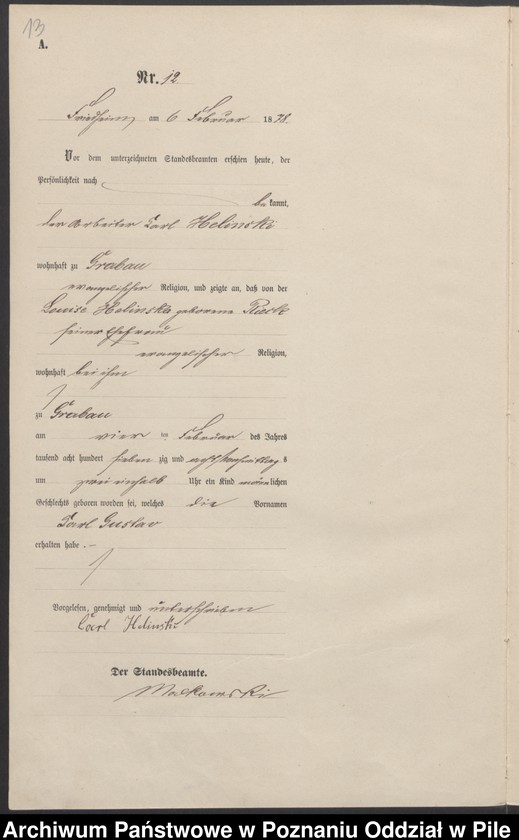 13
A.
Nr. 12.
Friedheim am 6 Februar 1878.
Vor dem unterzeichneten Standesbeamten erschien heute, der
Persönlichkeit nach
be kannt,
der Arbeiter Carl Helinski
wohnhaft zu Grabau
evangelischer Religion, und zeigte an, daß von der
Louise Helinska geborene Rieck
seiner Ehefrau
evangelischer Religion,
wohnhaft bei ihm
zu Grabau
am vier ten Februar des Jahres
tausend acht hundert sieben zig und acht Vormittag s
um zwei einhalb Uhr ein Kind männlichen
Geschlechts geboren worden sei, welches die Vornamen
Carl Gustav
erhalten habe.-
Vorgelesen, genehmigt und unterschrieben
Carl Helinski
Der Standesbeamte.
Archiwum Państwowe w Poznaniu Oddział w Pile